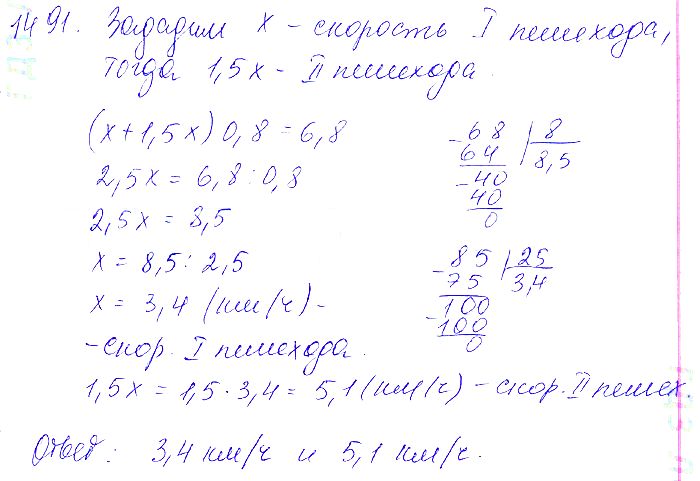 1491. Зададим x - скорость I пешехода,
тогда 1,5x - II пешехода.
(x+1,5x) 0,8 = 6,8
2,5x = 6,8 : 0,8
2,5x = 8,5
x = 8,5 : 2,5
x = 3,4 (км/ч) -
- скор. I пешехода.
1,5x = 1,5 · 3,4 = 5,1 (км/ч) - скор. II пешех.
Ответ: 3,4 км/ч и 5,1 км/ч.
- 68 | 8
64 | 8,5
- 40
40
0
- 85 | 25
75 | 3,4
- 100
100
0